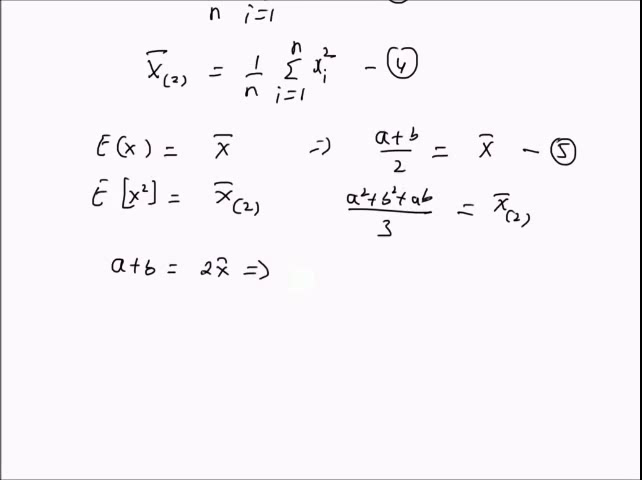 n i=1
x̄₍₂₎ = 1/n Σ_{i=1}^{n} x_i² - ④
E(x) = x̄ => (a+b)/2 = x̄ - ⑤
E[x²] = x̄₍₂₎ (a²+b²+ab)/3 = x̄₍₂₎
a+b = 2x̄ =>